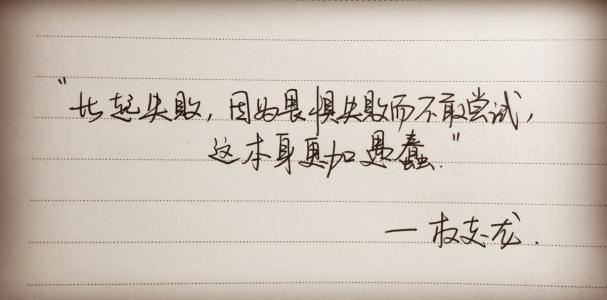 "比起失败，因为畏惧失败而不敢尝试，
这本身更加愚蠢."
—权志龙.